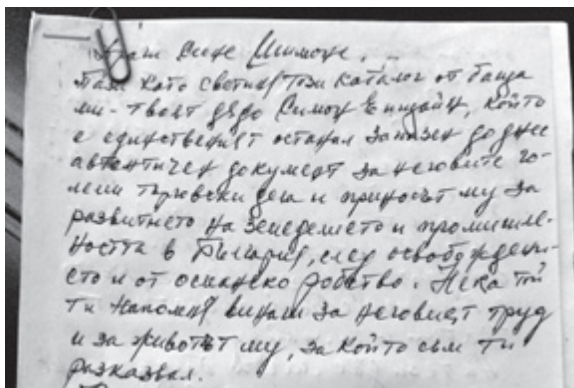 Сине Симоне,
Пази като светиня този каталог от баща
ми - твоят дядо Симон
е единственият останал запазен до днес
автентичен документ за неговите го-
леми търговски дела и приносът му за
развитието на земеделието и промишле-
ността в България, след освобождени-
ето и от османско робство. Нека той
ти напомня винаги за неговият труд
и за животът му, за който съм ти
разказвал.